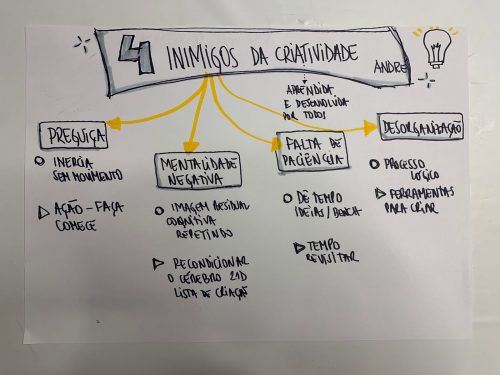 4 INIMIGOS DA CRIATIVIDADE
ANDRE
APRENDIDA
E DESENVOLVIDA
POR TODOS
PREGUIÇA
INERCIA
SEM MOVIMENTO
AÇÃO - FAÇA
COMECE
MENTALIDADE
NEGATIVA
IMAGEM RESIDUAL
COGNITIVA
REPETINDO
RECONDICIONAR
O CÉREBRO 21D
LISTA DE CRIAÇÃO
FALTA DE
PACIÊNCIA
DÊ TEMPO
IDEIAS /
TEMPO
REVISITAR
DESORGANIZAÇÃO
PROCESSO
LOGICO
FERRAMENTAS
PARA CRIAR